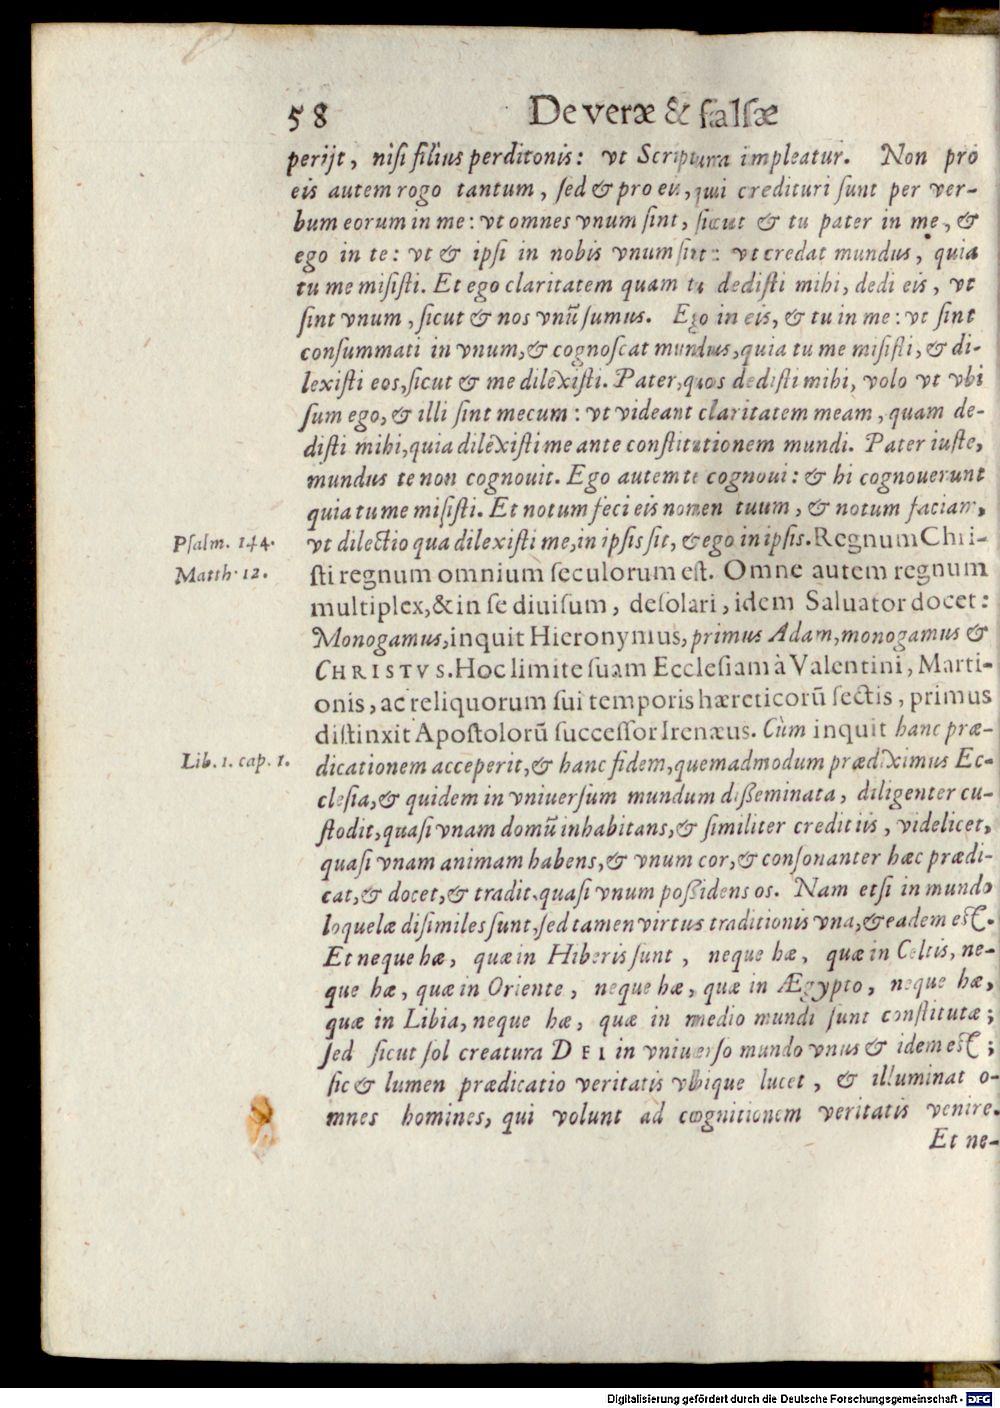 58 De veræ & falsæ
perijt, nisi filius perditonis: vt Scriptura impleatur. Non pro
eis autem rogo tantum, sed & pro eis, qui credituri sunt per ver-
bum eorum in me: vt omnes vnum sint, sicut & tu pater in me, &
ego in te: vt & ipsi in nobis vnum sint: vt credat mundus, quia
tu me misisti. Et ego claritatem quam tu dedisti mihi, dedi eis, vt
sint vnum, sicut & nos vnū sumus. Ego in eis, & tu in me: vt sint
consummati in vnum, & cognoscat mundus, quia tu me misisti, & di-
lexisti eos, sicut & me dilexisti. Pater, quos dedisti mihi, volo vt vbi
sum ego, & illi sint mecum: vt videant claritatem meam, quam de-
disti mihi, quia dilexisti me ante constitutionem mundi. Pater iuste,
mundus te non cognouit. Ego autem te cognoui: & hi cognouerunt
quia tu me misisti. Et notum feci eis nomen tuum, & notum faciam,
Psalm. 144. vt dilectio qua dilexisti me, in ipsis sit, & ego in ipsis. Regnum Chri-
Matth. 12. sti regnum omnium seculorum est. Omne autem regnum
multiplex, & in se diuisum, desolari, idem Saluator docet:
Monogamus, inquit Hieronymus, primus Adam, monogamus &
CHRISTVS. Hoc limite suam Ecclesiam à Valentini, Marti-
onis, ac reliquorum sui temporis hæreticorū sectis, primus
distinxit Apostolorū successor Irenæus. Cùm inquit hanc præ-
Lib. 1. cap. 1. dicationem acceperit, & hanc fidem, quemadmodum prædiximus Ec-
clesia, & quidem in vniuersum mundum disseminata, diligenter cu-
stodit, quasi vnam domū inhabitans, & similiter credit iis, videlicet,
quasi vnam animam habens, & vnum cor, & consonanter hæc prædi-
cat, & docet, & tradit, quasi vnum possidens os. Nam etsi in mundo
loquelæ disimiles sunt, sed tamen virtus traditionis vna, & eadem est.
Et neque hæ, quæ in Hiberis sunt, neque hæ, quæ in Celtis, ne-
que hæ, quæ in Oriente, neque hæ, quæ in Ægypto, neque hæ,
quæ in Libia, neque hæ, quæ in medio mundi sunt constitutæ;
sed sicut sol creatura DEI in vniuerso mundo vnus & idem est;
sic & lumen prædicatio veritatis vbique lucet, & illuminat o-
mnes homines, qui volunt ad cognitionem veritatis venire.
Et ne-
Digitalisierung gefördert durch die Deutsche Forschungsgemeinschaft - DFG